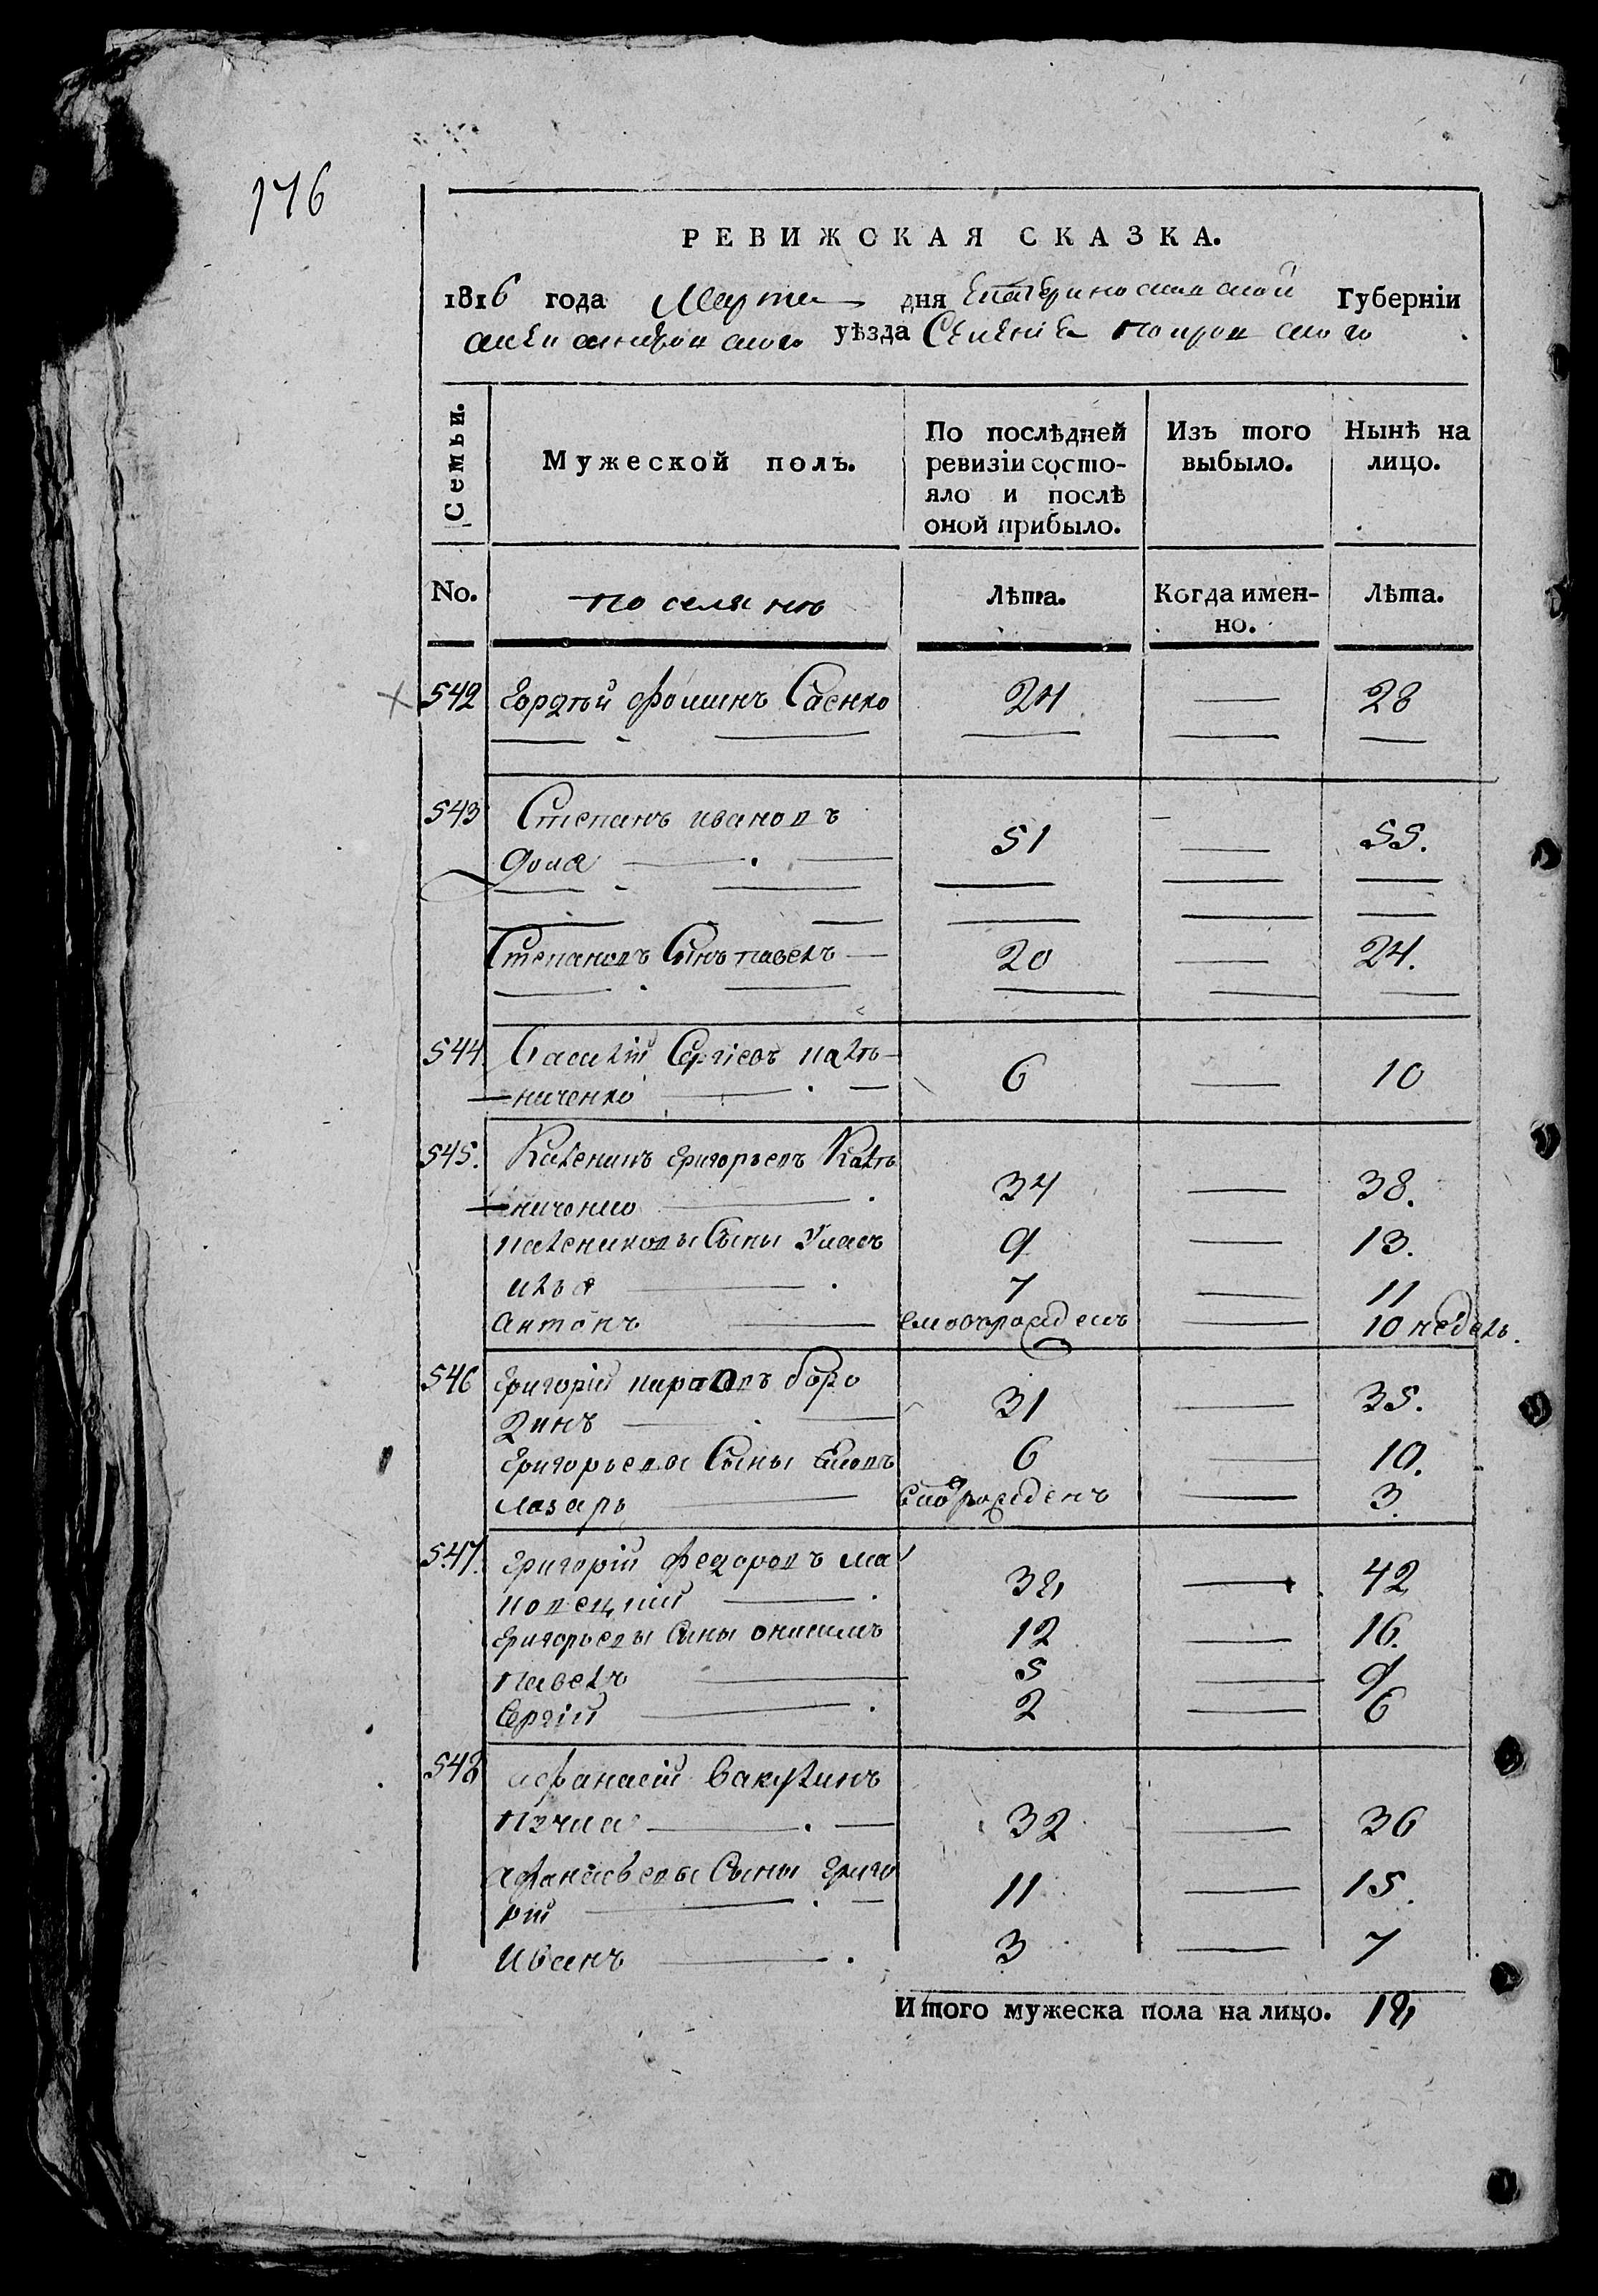 176
РЕВИЖСКАЯ СКАЗКА.
1816 года Марта дня Екатеринославской Губерніи
александровского уѣзда Селенія покровского
Семьи.
Мужеской полъ.
По послѣдней ревизіи состо-
яло и послѣ
оной прибыло.
Изъ того
выбыло.
Нынѣ на
лицо.
No.
поселянъ
Лѣта.
Когда имен-
но.
Лѣта.
542 Гордѣй Фоминъ Саенко 24 — 28
543 Степанъ ивановъ
51 — 55.
Степановъ Сынъ павелъ — 20 — 24.
544. Василій Сергіевъ калѣ-
ниченко 6 — 10
545. Каленикъ григорьевъ Калѣ
ниченко 34 — 38.
калениковы Сыны Уласъ 9 — 13.
илья 7 — 11
Антонъ новорожденъ — 10 недель.
546 григорій боро
динъ 31 — 35.
григорьевы Сыны 6 — 10.
лазарь новорожденъ — 3.
547. григорій федоровъ ма
ковецкий 38 — 42
григорьевы Сыны онисимъ 12 — 16.
павелъ 5 — 9
Сергій 2 — 6
548 афанасій Вакулинъ
32 — 36
афанасьевы Сыны григо
рій 11 — 15.
Иванъ 3 — 7
Итого мужеска пола на лицо. 18